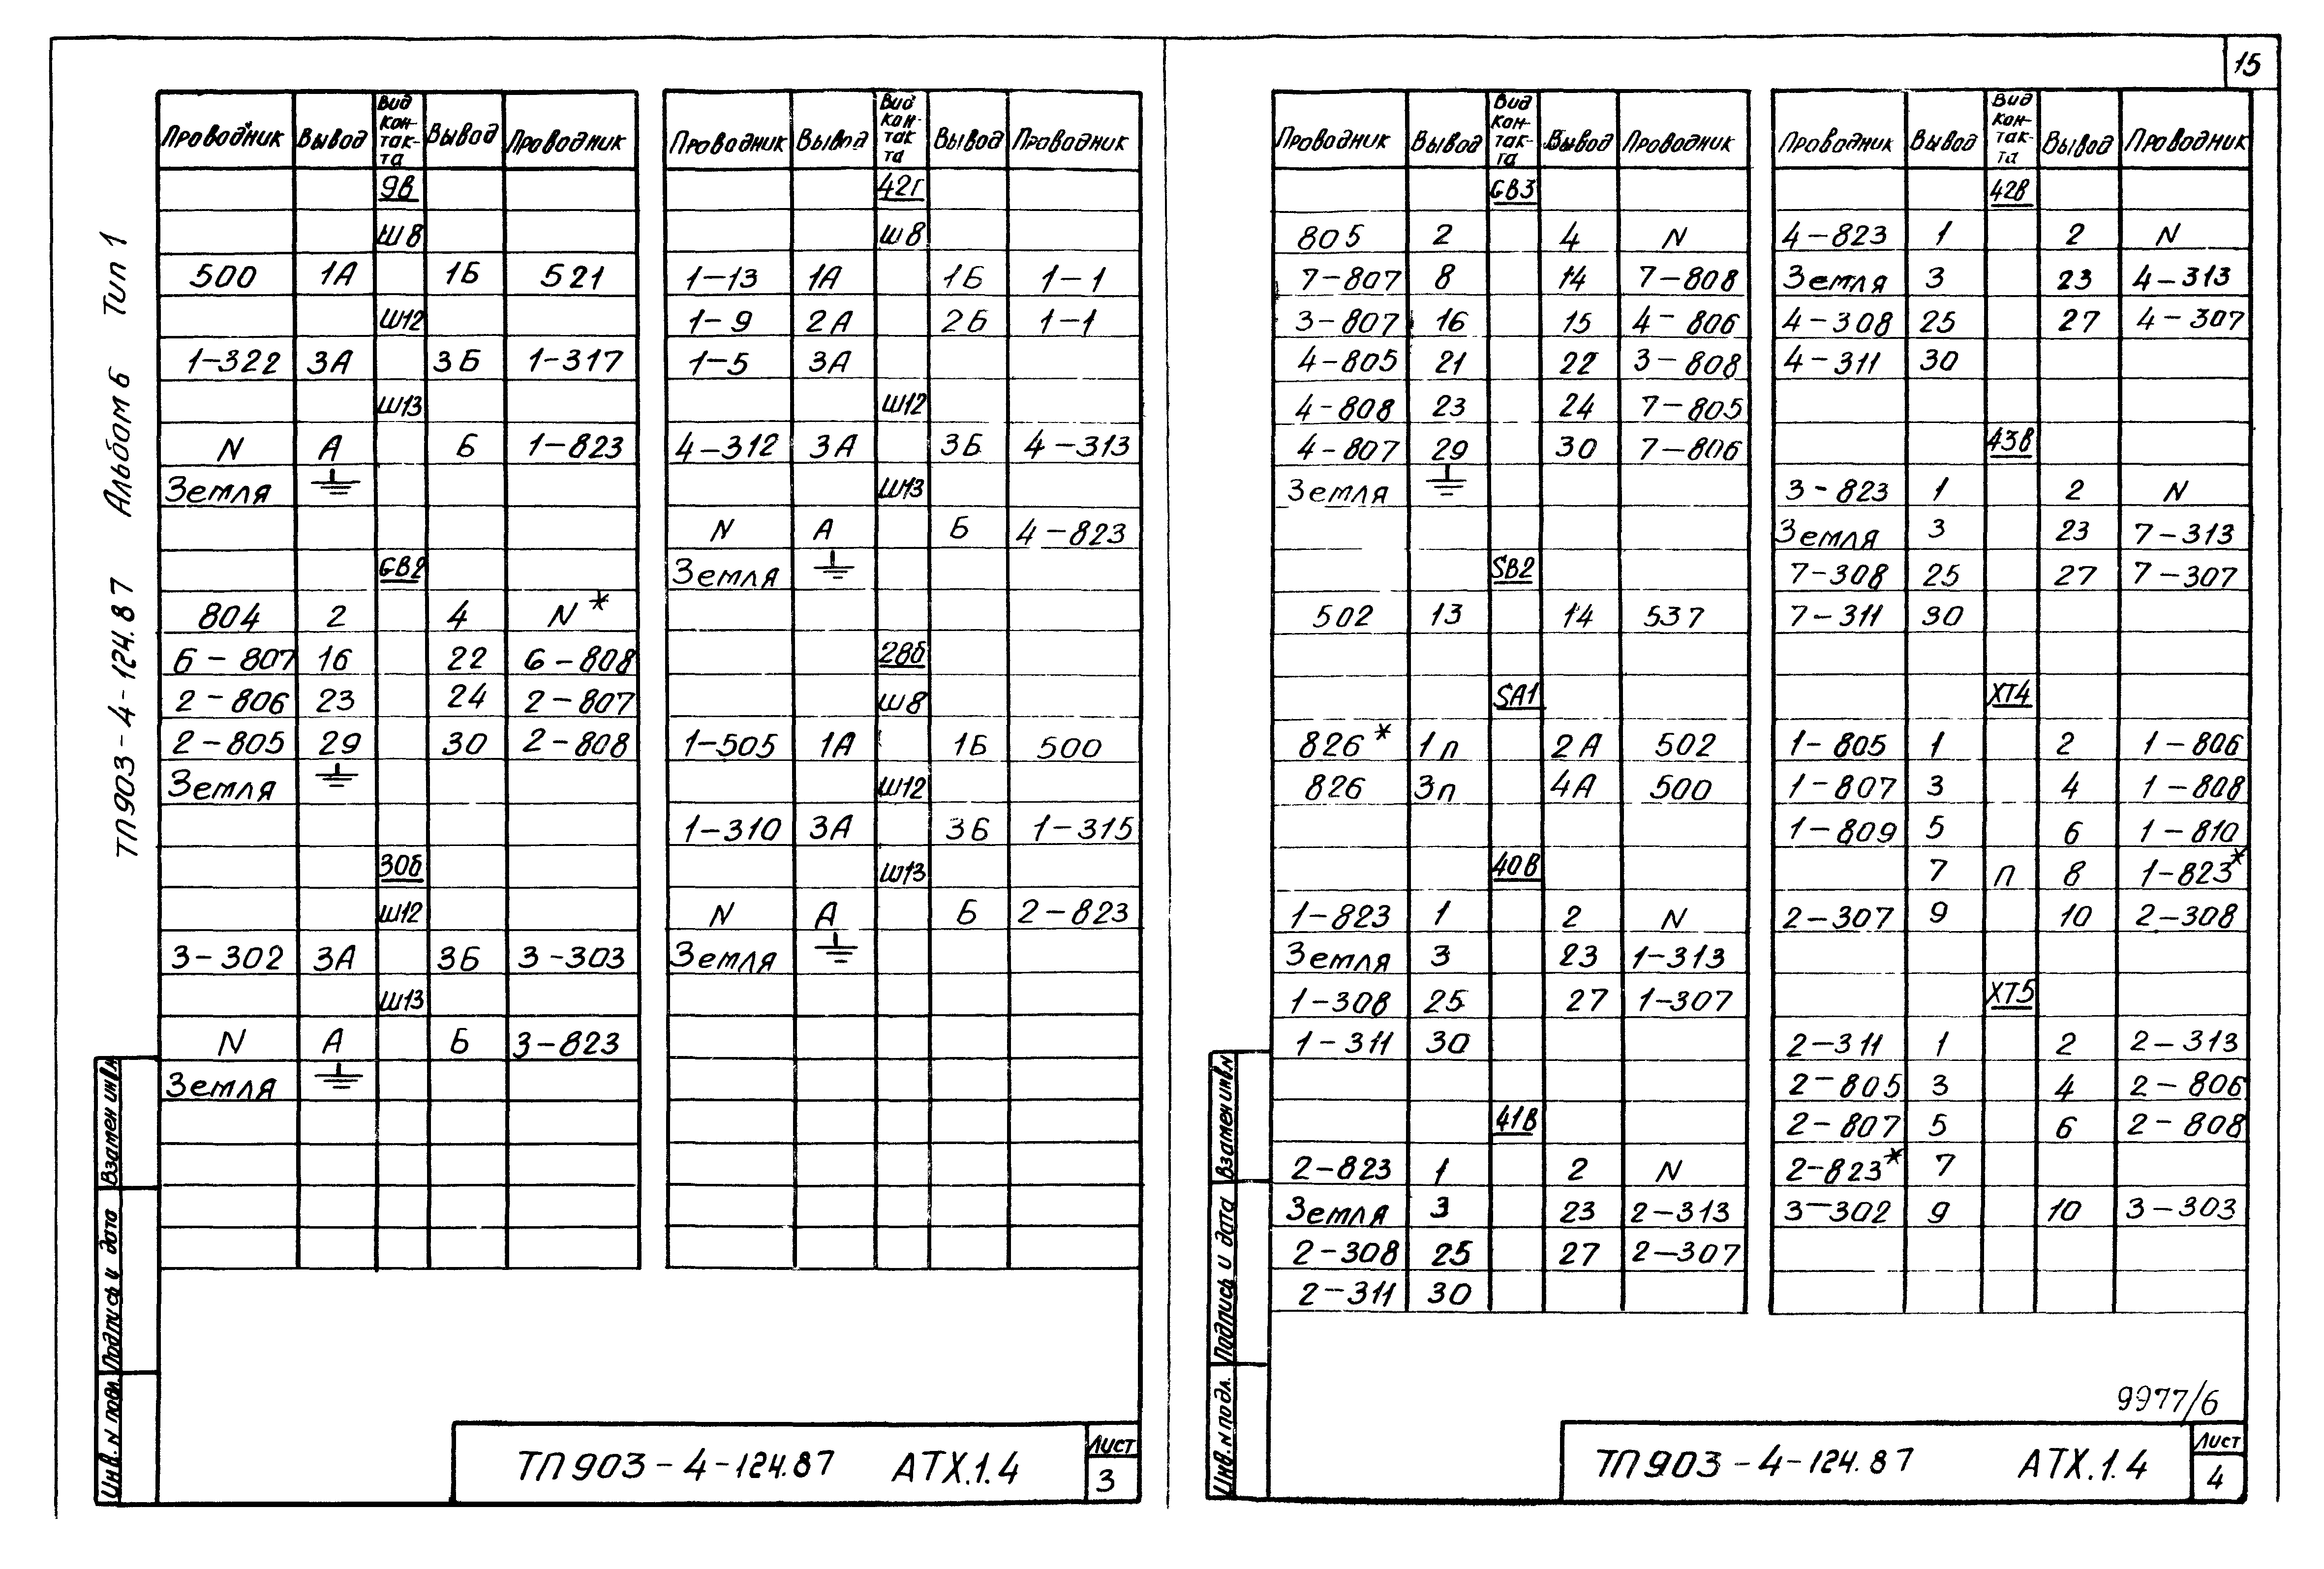 15
ТП903-4-124.87 Альбом 6 Тип 1
Проводник Вывод Вид кон-так-та Вывод Проводник
9В
Ш8
500 1А 1Б 521
Ш12
1-322 3А 3Б 1-317
Ш13
N А Б 1-823
Земля ⏚
GB2
804 2 4 N*
6-807 16 22 6-808
2-806 23 24 2-807
2-805 29 30 2-808
Земля ⏚
30б
Ш12
3-302 3А 3Б 3-303
Ш13
N А Б 3-823
Земля ⏚
Проводник Вывод Вид кон-так та Вывод Проводник
42г
Ш8
1-13 1А 1Б 1-1
1-9 2А 2Б 1-1
1-5 3А
Ш12
4-312 3А 3Б 4-313
Ш13
N А Б 4-823
Земля ⏚
28б
Ш8
1-505 1А 1Б 500
Ш12
1-310 3А 3Б 1-315
Ш13
N А Б 2-823
Земля ⏚
Взамен инв.N
Подпись и дата
Инв. N подл.
ТП903-4-124.87 АТХ.1.4
Лист
3
Проводник Вывод Вид кон-так-та Вывод Проводник
GB3
805 2 4 N
7-807 8 14 7-808
3-807 16 15 4-806
4-805 21 22 3-808
4-808 23 24 7-805
4-807 29 30 7-806
Земля ⏚
SB2
502 13 14 537
SA1
826* 1п 2А 502
826 3п 4А 500
40В
1-823 1 2 N
Земля 3 23 1-313
1-308 25 27 1-307
1-311 30
41В
2-823 1 2 N
Земля 3 23 2-313
2-308 25 27 2-307
2-311 30
Проводник Вывод Вид кон-так-та Вывод Проводник
42В
4-823 1 2 N
Земля 3 23 4-313
4-308 25 27 4-307
4-311 30
43В
3-823 1 2 N
Земля 3 23 7-313
7-308 25 27 7-307
7-311 30
XT4
1-805 1 2 1-806
1-807 3 4 1-808
1-809 5 6 1-810
7 п 8 1-823*
2-307 9 10 2-308
XT5
2-311 1 2 2-313
2-805 3 4 2-806
2-807 5 6 2-808
2-823* 7
3-302 9 10 3-303
Взамен инв.N
Подпись и дата
Инв. N подл.
9977/6
ТП903-4-124.87 АТХ.1.4
Лист
4